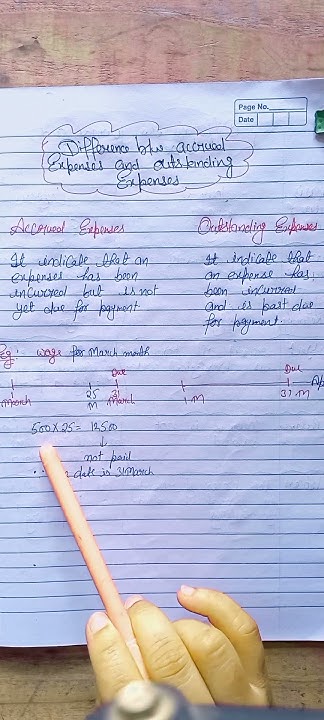 Page No.
Date
Difference b/w accrued
Expenses and outstanding
Expenses
Accrued Expenses
It indicate that an
expenses has been
incurred but is not
yet due for payment
Outstanding Expenses
It indicate that
an expense has
been incurred
and is past due
for payment.
Eg: wage for March month
Due
Due
March
25
M
31
March
1 M
31 M
Ap
500 × 25 = 12,500
↓
not paid
date is 31 March